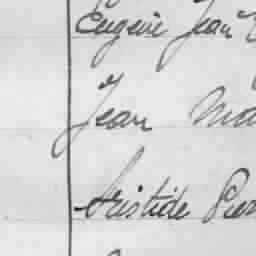 Eugène Jean
Jean Ma
Aristide Pier